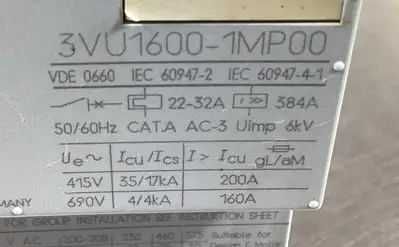 3VU1600-1MP00
VDE 0660 IEC 60947-2 IEC 60947-4-1
22-32A I>> 384A
50/60Hz CAT.A AC-3 Uimp 6kV
Ue~ Icu/Ics I> Icu gL/aM
415V 35/17kA 200A
690V 4/4kA 160A
MANY
FOR GROUP INSTALLATION SEE INSTRUKTION SHEET
V AC 200-208 230 460 575 Suitable for
Design E Motor